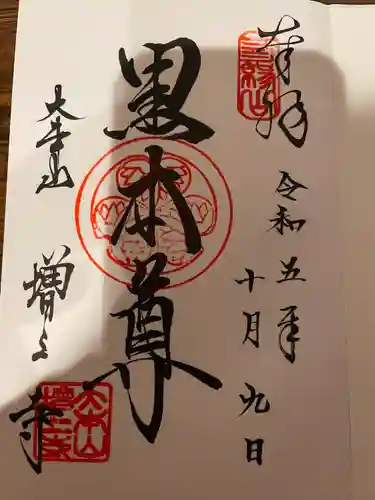 奉拝
令和五年
十月九日
黒本尊
大本山
増上寺